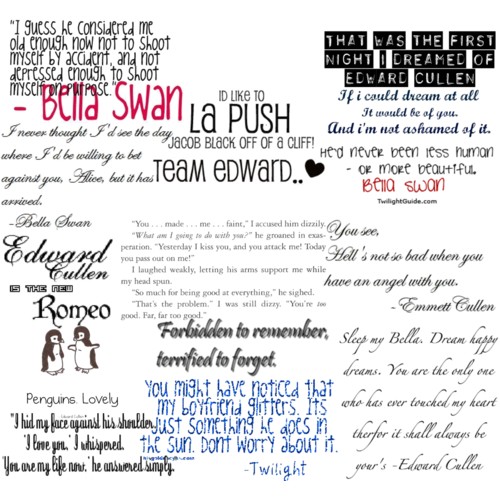 "I guess he considered me
old enough now not to shoot
myself by accident, and not
depressed enough to shoot
myself on purpose."
- Bella Swan
I never thought I'd see the day
where I'd be willing to bet
against you, Alice, but it has
arrived.
-Bella Swan
Edward
Cullen
IS THE NEW
Romeo
Penguins. Lovely
Edward Cullen
"I hid my face against his shoulder.
'I love you,' I whispered.
'You are my life now,' he answered simply.
ID LIKE TO
LA PUSH
JACOB BLACK OFF OF A CLIFF!
TEAM EDWARD..
"You . . . made . . . me . . . faint," I accused him dizzily.
"What am I going to do with you?" he groaned in exas-
peration. "Yesterday I kiss you, and you attack me! Today
you pass out on me!"
I laughed weakly, letting his arms support me while
my head spun.
"So much for being good at everything," he sighed.
"That's the problem." I was still dizzy. "You're too
good. Far, far too good."
Forbidden to remember,
terrified to forget.
You might have noticed that
my boyfriend glitters. Its
just something he does in
the sun. Dont worry about it.
-Twilight
THAT WAS THE FIRST
NIGHT I DREAMED OF
EDWARD CULLEN
If i could dream at all
It would be of you.
And i'm not ashamed of it.
He'd never been less human
- or more beautiful.
Bella Swan
TwilightGuide.com
You see,
Hell's not so bad when you
have an angel with you.
-Emmett Cullen
Sleep my Bella. Dream happy
dreams. You are the only one
who has ever touched my heart
therfor it shall always be
your's -Edward Cullen